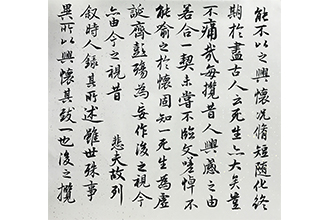 能不以之興懷況脩短隨化終
期於盡古人云死生亦大矣豈
不痛哉每攬昔人興感之由
若合一契未嘗不臨文嗟悼不
能喻之於懷固知一死生為虛
誕齊彭殤為妄作後之視今
亦由今之視昔 悲夫故列
叙時人錄其所述雖世殊事
異所以興懷其致一也後之攬